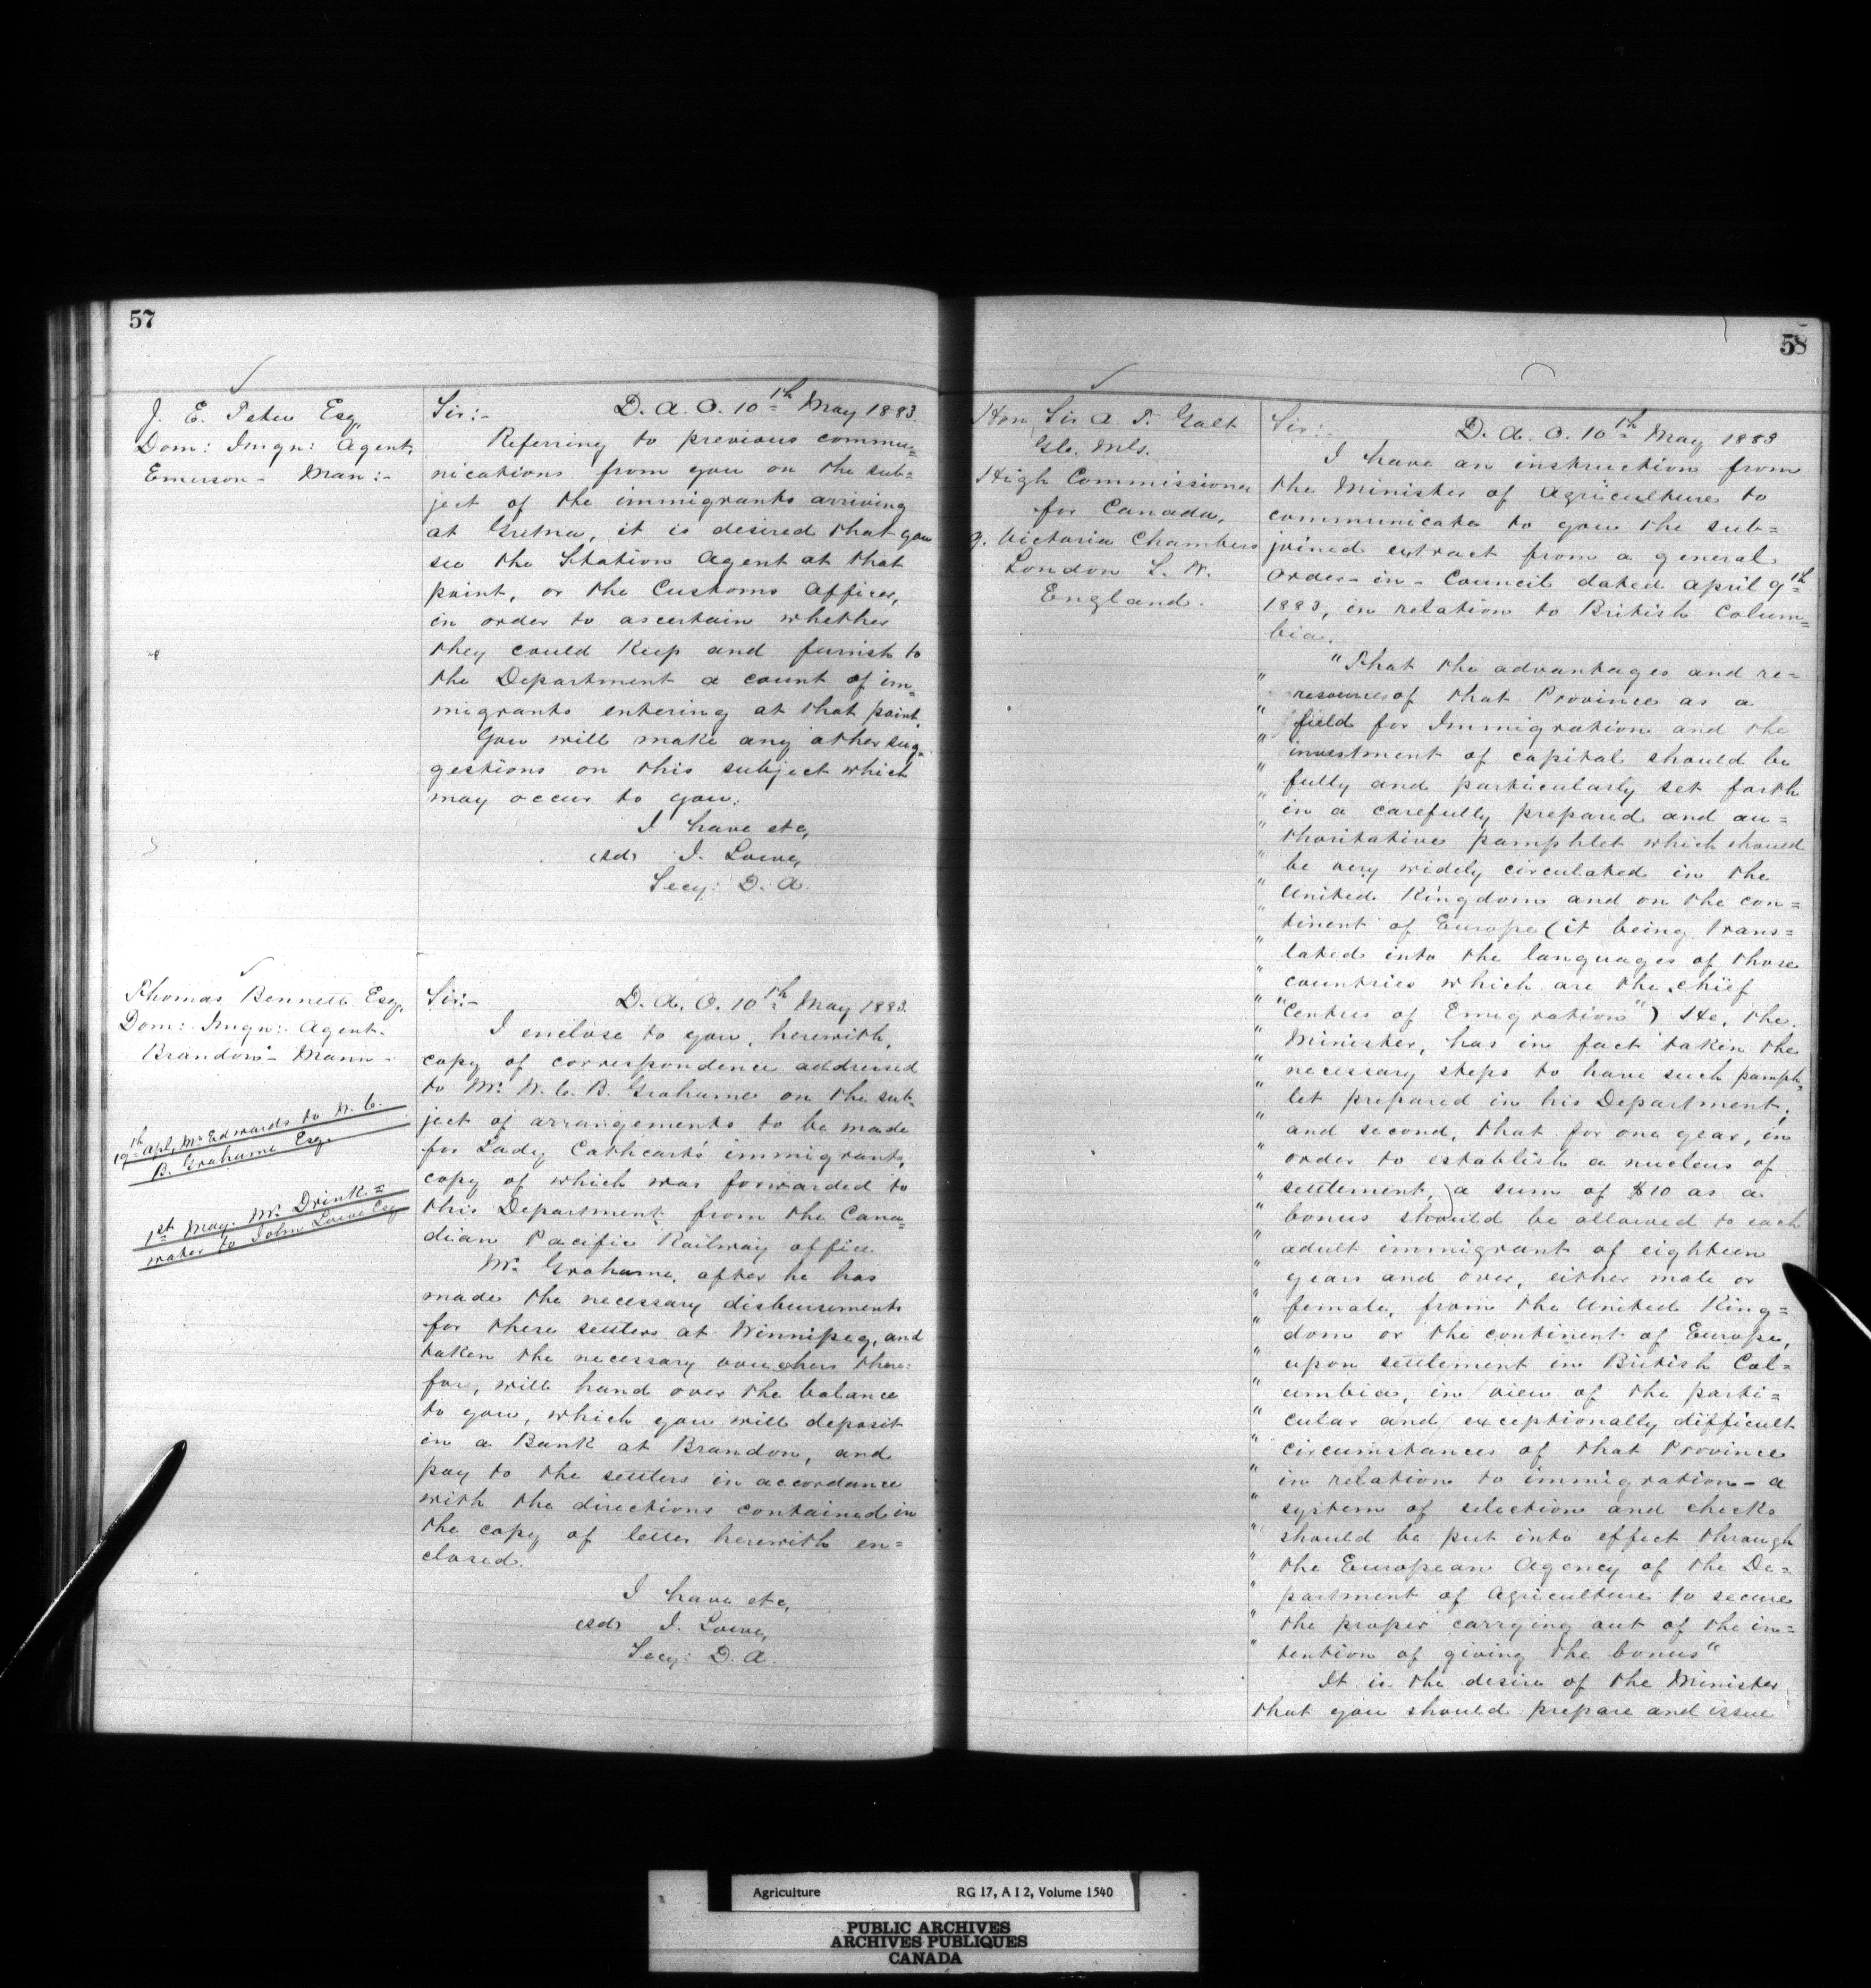 57
J. E. Teteu Esq
Dom: Imgn: Agent,
Emerson - Man:-
Sir:- D. A. O. 10th May 1883.
Referring to previous commu=
nications from you on the sub=
ject of the immigrants arriving
at Gretna, it is desired that you
see the Station Agent at that
point, or the Customs Officer,
in order to ascertain whether
they could Keep and furnish to
the Department a count of im=
migrants entering at that point.
You will make any other sug=
gestions on this subject which
may occur to you.
I have etc,
(sd) J. Lowe,
Secy: D. A.
Thomas Bennett Esq,
Dom: Imgn:- Agent.
Brandon - Mann -
19th Apl, Mr Edwards to W. C.
B. Grahame Esq.
1st May: Mr. Drink=
water to John Lowe Esq
Sir:- D. A. O. 10th May 1883.
I enclose to you, herewith,
copy of correspondence addressed
to Mr. W. C. B. Grahame on the sub=
ject of arrangements to be made
for Lady Cathcart's immigrants,
copy of which was forwarded to
this Department from the Cana=
dian Pacific Railway office
Mr. Grahame, after he has
made the necessary disbursements
for these settlers at Winnipeg, and
taken the necessary vouchers there=
for, will hand over the balance
to you, which you will deposit
in a Bank at Brandon, and
pay to the settlers in accordance
with the directions contained in
the copy of letter herewith en=
closed.
I have etc,
(sd) J. Lowe,
Secy: D. A.
58
Hon, Sir A. T. Galt
High Commissioner
for Canada,
9. Victoria Chambers
London S. W.
England.
Sir:- D. A. O. 10th May 1883
I have an instruction from
the Minister of Agriculture to
communicate to you the sub=
joined extract from a general
Order-in-Council dated April 9th
1883, in relation to British Colum=
bia.
"That the advantages and re=
" resources of that Province as a
" field for Immigration and the
" investment of capital should be
" fully and particularly set forth
" in a carefully prepared and au=
" thoritative pamphlet which should
" be very widely circulated in the
" United Kingdom and on the con=
" tinent of Europe (it being trans=
" lated into the languages of those
" countries which are the chief
" "Centres of Emigration") He, the
" Minister, has in fact taken the
" necessary steps to have such pamph=
" let prepared in his Department;
" and second, that for one year, in
" order to establish a nucleus of
" settlement, a sum of $10 as a
" bonus should be allowed to each
" adult immigrant of eighteen
" years and over, either male or
" female, from the United King=
" dom or the continent of Europe,
" upon settlement in British Col=
" umbia, in view of the parti=
" cular and exceptionally difficult
" circumstances of that Province
" in relation to immigration - a
" system of selection and checks
" should be put into effect through
" the European Agency of the De=
" partment of Agriculture to secure
" the proper carrying out of the in=
" tention of giving the bonus"
It is the desire of the Minister
that you should prepare and issue
Agriculture RG 17, A I 2, Volume 1540
PUBLIC ARCHIVES
ARCHIVES PUBLIQUES
CANADA